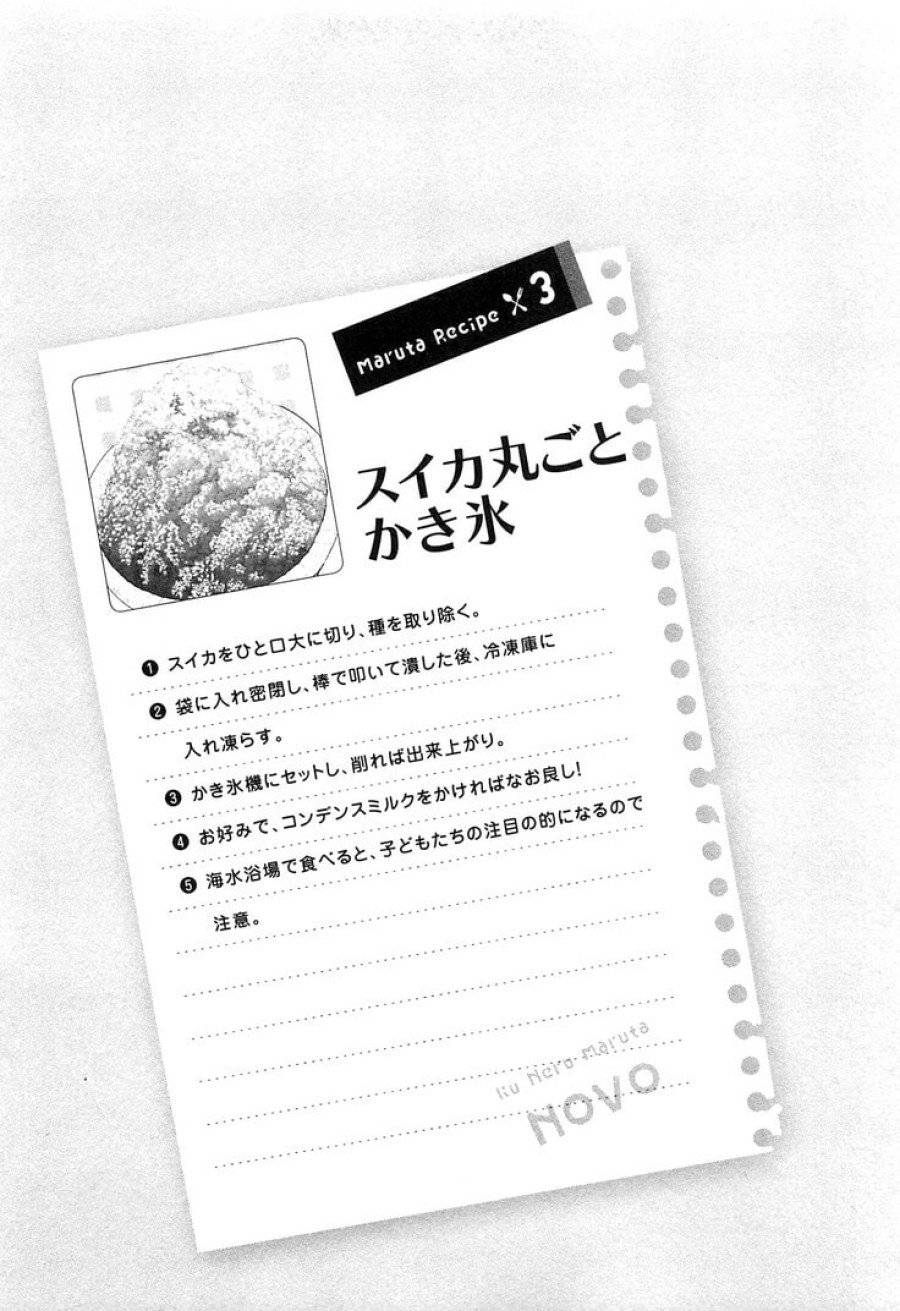 Maruta Recipe 3
スイカ丸ごと
かき氷
❶ スイカをひと口大に切り、種を取り除く。
❷ 袋に入れ密閉し、棒で叩いて潰した後、冷凍庫に
入れ凍らす。
❸ かき氷機にセットし、削れば出来上がり。
❹ お好みで、コンデンスミルクをかければなお良し!
❺ 海水浴場で食べると、子どもたちの注目の的になるので
注意。
Hero Maruta
NOVO